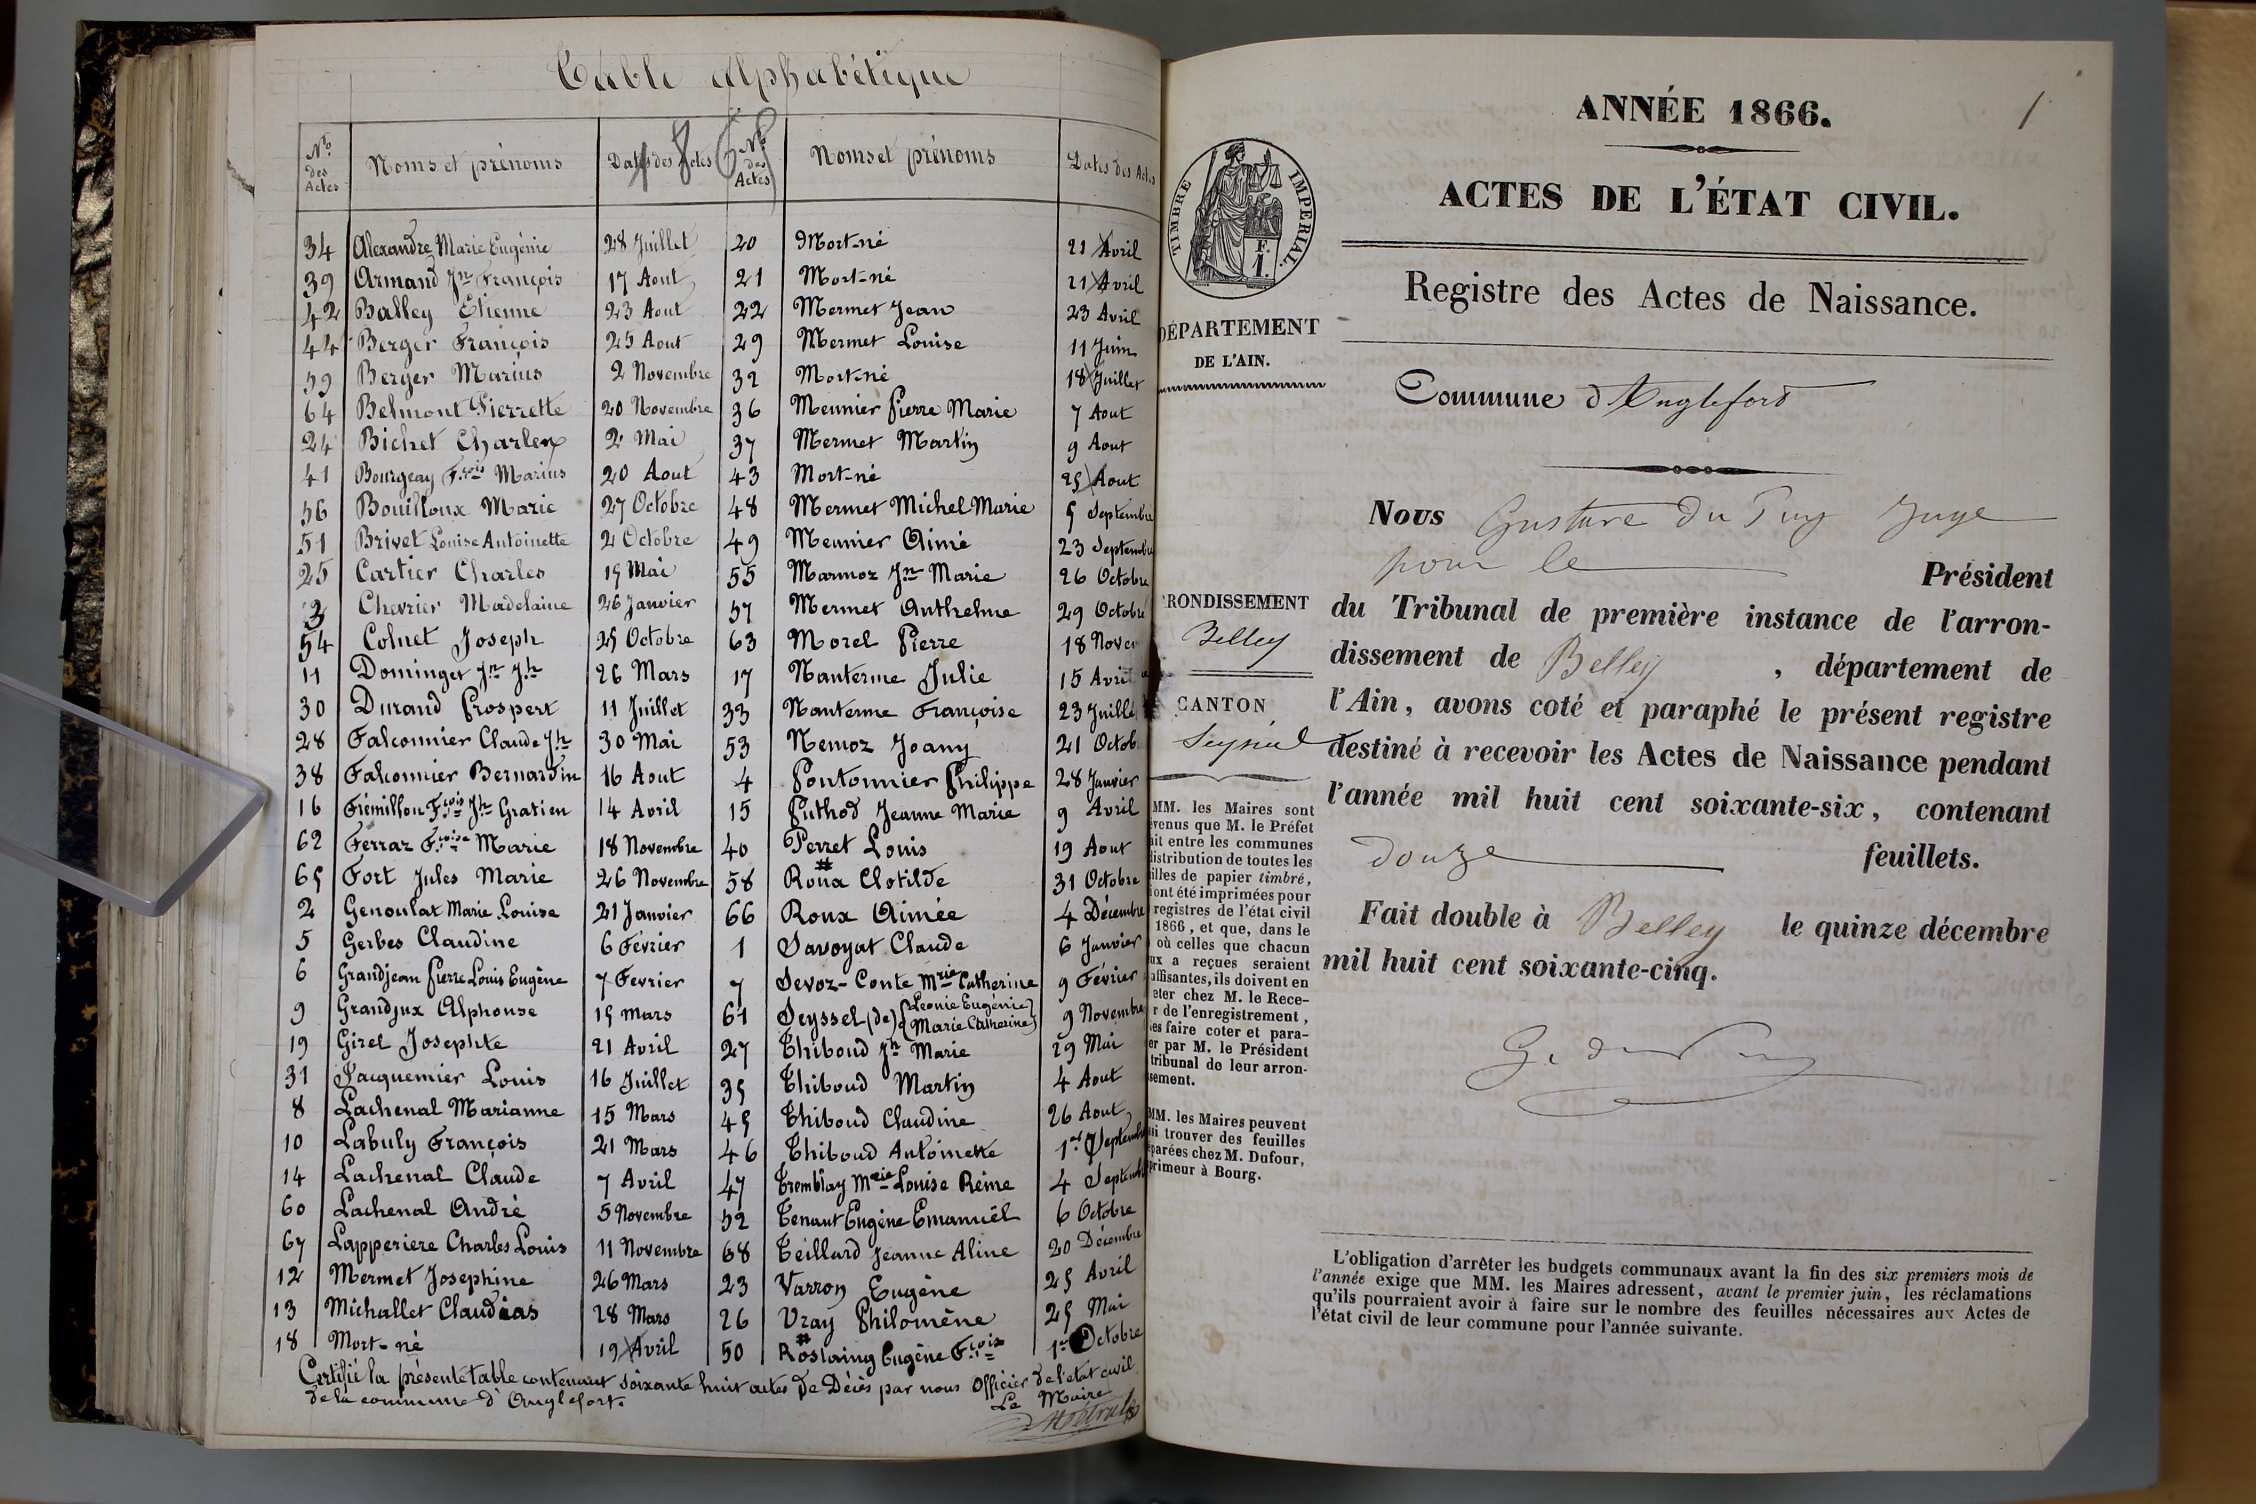 Table alphabétique
1865
Nos des Actes Noms et prénoms Dates des Actes Nos des Actes Noms et prénoms Dates des Actes
34 Alexandre Marie Eugénie 28 Juillet 20 Mort-né 21 Avril
39 Armand Jn François 17 Aout 21 Mort-né 21 Avril
42 Balley Etienne 23 Aout 22 Mermet Jean 23 Avril
44 Berger François 25 Aout 29 Mermet Louise 11 Juin
59 Berger Marius 2 Novembre 32 Mort-né 18 Juillet
64 Belmont Pierrette 20 Novembre 36 Meunier Pierre Marie 7 Aout
24 Bichet Charles 2 Mai 37 Mermet Martin 9 Aout
41 Bourgeay Frois Marius 20 Aout 43 Mort-né 25 Aout
56 Bouilloux Marie 27 Octobre 48 Mermet Michel Marie 5 Septembre
51 Brivet Louise Antoinette 2 Octobre 49 Meunier Aimé 23 Septembre
25 Cartier Charles 15 Mai 55 Marmoz Jn Marie 26 Octobre
3 Chevrier Madelaine 26 Janvier 57 Mermet Anthelme 29 Octobre
54 Colnet Joseph 25 Octobre 63 Morel Pierre 18 Nove
11 Dominget Jn Jh 26 Mars 17 Nanterme Julie 15 Avril
30 Durand Prospert 11 Juillet 33 Nanterme Françoise 23 Juillet
28 Falconnier Claude Jh 30 Mai 53 Nemoz Joany 21 Octob
38 Falconnier Bernardin 16 Aout 4 Pontonnier Philippe 28 Janvier
16 Fiémillon Frois Jh Gratien 14 Avril 15 Puthod Jeanne Marie 9 Avril
62 Ferraz Froise Marie 18 Novembre 40 Perret Louis 19 Aout
65 Fort Jules Marie 26 Novembre 58 Roux Clotilde 31 Octobre
2 Genoulaz Marie Louise 21 Janvier 66 Roux Aimée 4 Décembre
5 Gerbes Claudine 6 Février 1 Savoyat Claude 6 Janvier
6 Grandjean Pierre Louis Eugène 7 Fevrier 7 Sevoz-Conte Mrie Catherine 9 Février
9 Grandjux Alphonse 15 Mars 61 Seyssel (de) {Leonie Eugénie Marie Catherine} 9 Novembre
19 Girel Josephte 21 Avril 27 Thiboud Jh Marie 29 Mai
31 Jacquemier Louis 16 Juillet 35 Thiboud Martin 4 Aout
8 Lachenal Marianne 15 Mars 45 Thiboud Claudine 26 Aout
10 Labuly François 21 Mars 46 Thiboud Antoinette 1er Septemb
14 Lachenal Claude 7 Avril 47 Tremblay Mrie Louise Reine 4 Septemb
60 Lachenal André 5 Novembre 52 Tenaut Eugène Emanuël 6 Octobre
67 Lapperiere Charles Louis 11 Novembre 68 Teillard Jeanne Aline 20 Décembre
12 Mermet Josephine 26 Mars 23 Varron Eugène 25 Avril
13 Michallet Claudias 28 Mars 26 Vray Philomène 25 Mai
18 Mort-né 19 Avril 50 Roslaing Eugène Frois 1er Octobre
Certifié la présente table contenant soixante huit actes de Décès par nous Officier de l'état civil
de la commune d'Anglefort.
Le Maire
1
ANNÉE 1866.
ACTES DE L'ÉTAT CIVIL.
TIMBRE IMPERIAL.
F.
1.
Registre des Actes de Naissance.
DÉPARTEMENT
DE L'AIN.
Commune d'Anglefort
Nous Gustave Du Puy Juge
pour le Président
du Tribunal de première instance de l'arron-
dissement de Belley, département de
l'Ain, avons coté et paraphé le présent registre
destiné à recevoir les Actes de Naissance pendant
l'année mil huit cent soixante-six, contenant
douze feuillets.
Fait double à Belley le quinze décembre
mil huit cent soixante-cinq.
G. du Puy
RONDISSEMENT
Belley
CANTON
Seyssel
MM. les Maires sont
evenus que M. le Préfet
ait entre les communes
distribution de toutes les
illes de papier timbré,
ont été imprimées pour
registres de l'état civil
1866, et que, dans le
où celles que chacun
ux a reçues seraient
uffisantes, ils doivent en
eter chez M. le Rece-
r de l'enregistrement,
es faire coter et para-
er par M. le Président
tribunal de leur arron-
sement.
MM. les Maires peuvent
si trouver des feuilles
éparées chez M. Dufour,
primeur à Bourg.
L'obligation d'arrêter les budgets communaux avant la fin des six premiers mois de
l'année exige que MM. les Maires adressent, avant le premier juin, les réclamations
qu'ils pourraient avoir à faire sur le nombre des feuilles nécessaires aux Actes de
l'état civil de leur commune pour l'année suivante.